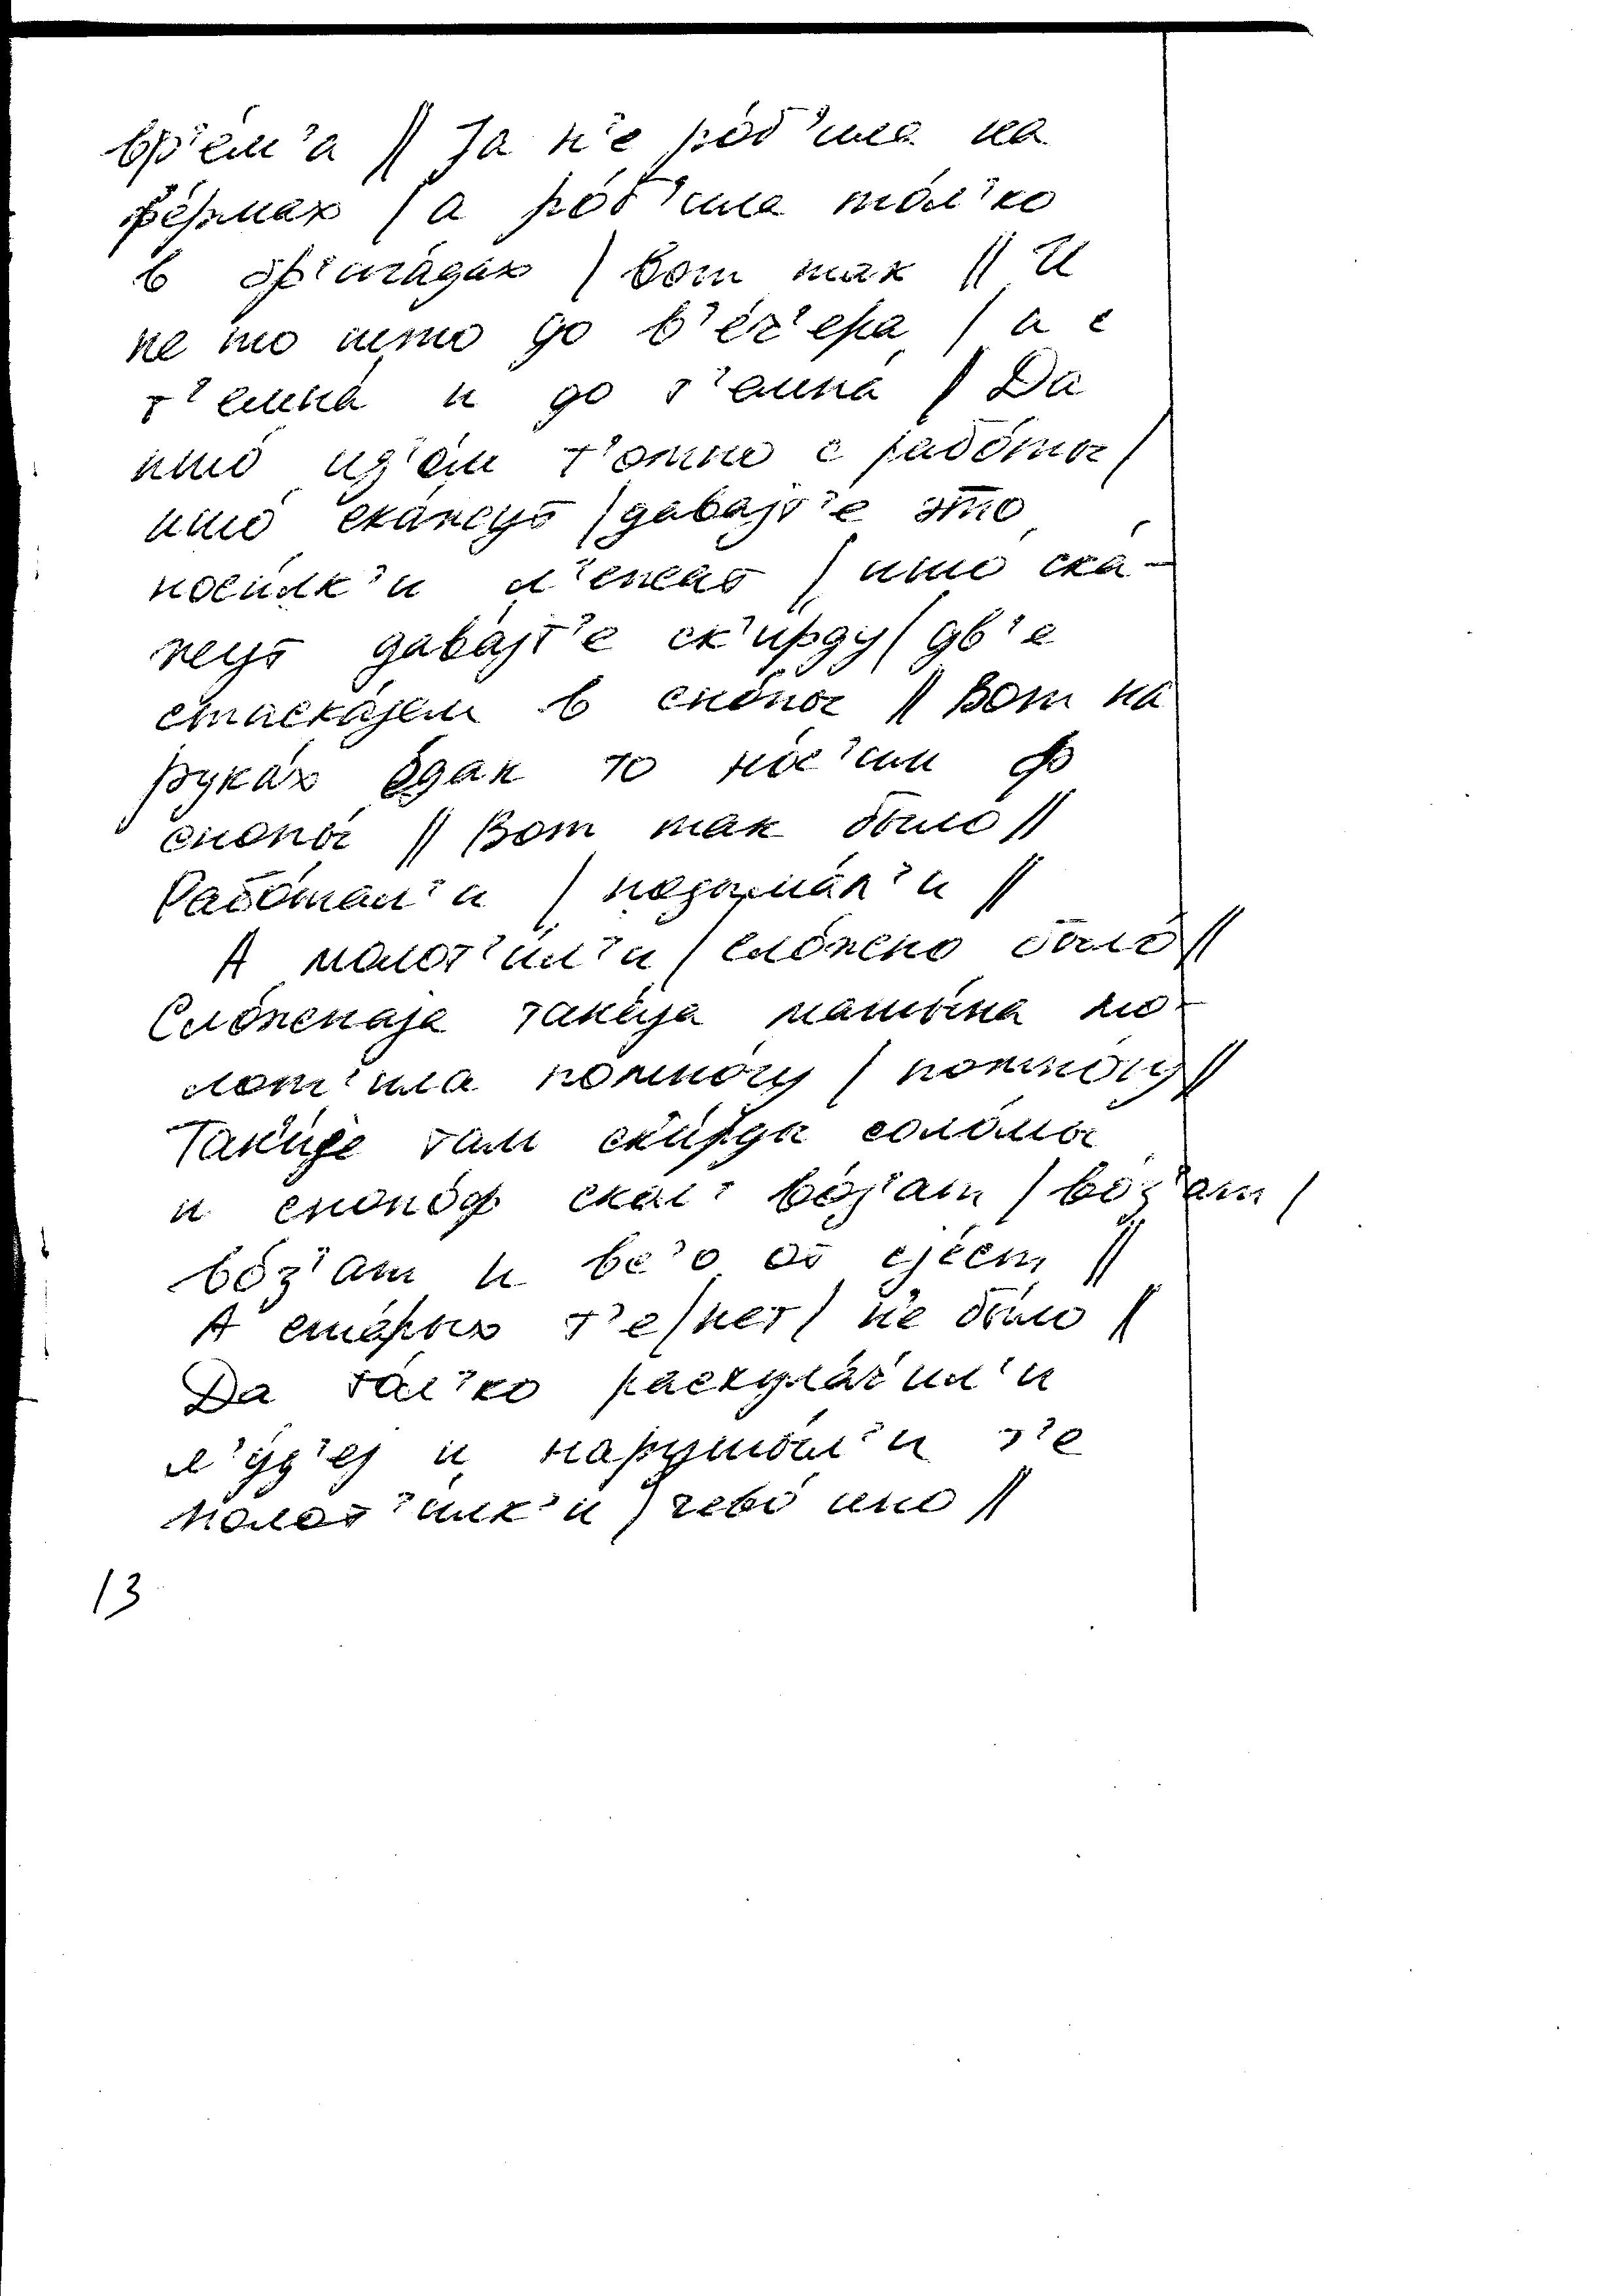 вр'ём'а // Jа н'е роб'ила на
фе́рмах / а ро́б'ила то́л'ко
в бр'ига́дах / вот так // И
не то што до в'е́ч'ера / а с
т'емна́ и до т'емна́ / Да
што́ ид'ом т'омно с рабо́ты /
што́ ска́жут / давајт'е это
носи́лк'и л'ежат / што́ ска́-
жут дава́јт'е ск'и́рду / дв'е
стаска́јем в сно́пы // Вот на
рука́х э́дак то но́с'им ф
снопы́ // Вот так было //
Рабо́тал'и / подыма́л'и //
А молот'и́л'и / сло́жено было́ //
Сло́женаја така́ја машы́на мо-
лот'ила пожно́чу / пожно́чу //
Так'и́је там ск'и́рды соло́мы
и снопо́ф скол' во́з'ат / во́з'ат /
во́з'ат и вс'о от сје́ст //
А ста́рых т'е / нет / н'е бы́ло //
Да то́л'ко раскула́ч'ил'и
л'у́д'еј и нарушы́л'и т'е
молот'и́лк'и / чево́ ино //
13